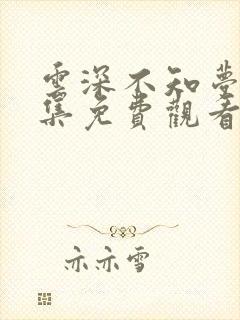 雲深不知夢
集免費觀看
亦亦雪